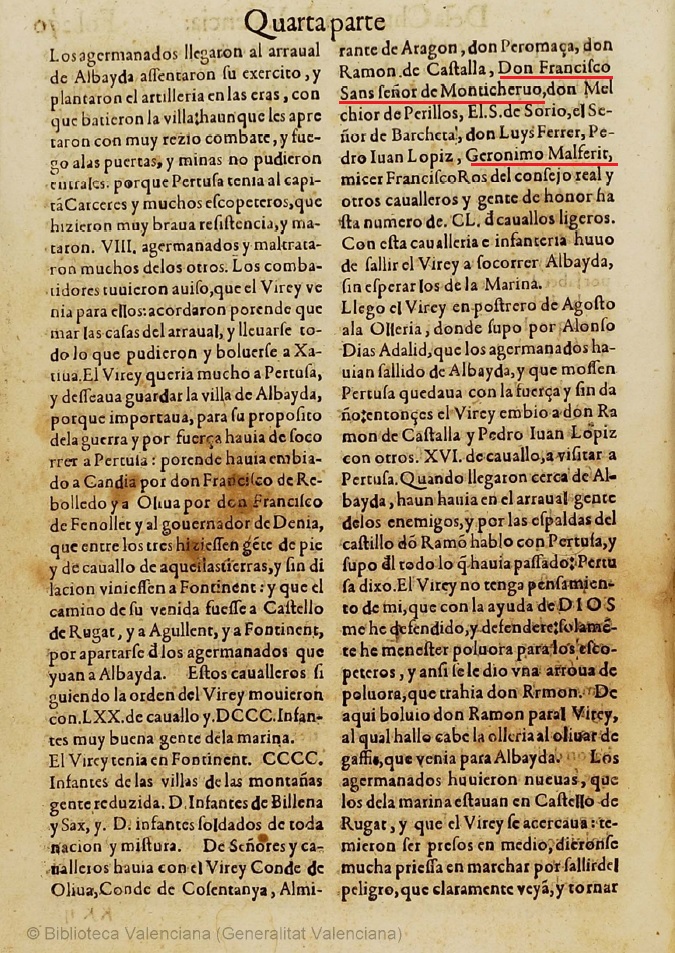 Quarta parte
Los agermanados llegaron al arraual
de Albayda aſſentaron ſu exercito, y
plantaron el artilleria en las eras, con
que batieron la villa:haun que les apre
taron con muy rezio combate, y fue-
go alas puertas, y minas no pudieron
entrales. porque Pertuſa tenia al capi-
tã Carceres y muchos eſcopeteros, que
hizieron muy braua reſiſtencia, y ma-
taron. VIII. agermanados y maltrata-
ron muchos delos otros. Los comba-
tidores tuuieron auiſo, que el Virey ve
nia para ellos: acordaron porende que
mar las caſas del arraual, y lleuarſe to-
do lo que pudieron y boluerſe a Xa-
tiua. El Virey queria mucho a Pertuſa,
y deſſeaua guardar la villa de Albayda,
porque importaua, para ſu propoſito
dela guerra y por fuerça hauia de ſoco
rrer a Pertuſa : porende hauia embia-
do a Candia por don Franciſco de Re-
bolledo y a Oliua por don Franciſco
de Fenollet y al gouernador de Denia,
que entre los tres hizieſſen gẽte de pie
y de cauallo de aquellas tierras, y ſin di
lacion vinieſſen a Fontinent : y que el
camino de ſu venida fueſſe a Caſtello
de Rugat, y a Agullent, y a Fontinent,
por apartarſe d los agermanados que
yuan a Albayda. Eſtos caualleros ſi
guiendo la orden del Virey mouieron
con. LXX. de cauallo y. DCCC. Infan-
tes muy buena gente dela marina.
El Virey tenia en Fontinent. CCCC.
Infantes de las villas de las montañas
gente reduzida. D. Infantes de Billena
y Sax, y. D. infantes ſoldados de toda
nacion y miſtura. De Señores y ca-
ualleros hauia con el Virey Conde de
Oliua, Conde de Coſentanya, Almi-
rante de Aragon, don Peromaça, don
Ramon. de Caſtalla, Don Franciſco
Sans ſeñor de Monticheruo, don Mel
chior de Perillos, El. S. de Sorio, el Se-
ñor de Barcheta, don Luys Ferrer, Pe-
dro Iuan Lopiz, Geronimo Malferit,
micer Franciſco Ros del conſejo real y
otros caualleros y gente de honor ha
ſta numero de. CL. d cauallos ligeros.
Con eſta caualleria e infanteria huuo
de ſallir el Virey a ſocorrer Albayda,
ſin eſperar los de la Marina.
Llego el Virey en poſtrero de Agoſto
ala Olleria, donde ſupo por Alonſo
Dias Adalid, que los agermanados ha-
uian ſallido de Albayda, y que moſſen
Pertuſa quedaua con la fuerça y ſin da
ño: entonçes el Virey embio a don Ra
mon de Caſtalla y Pedro Iuan Lopiz
con otros. XVI. de cauallo, a viſitar a
Pertuſa. Quando llegaron cerca de Al-
bayda, haun hauia en el arraual gente
delos enemigos, y por las eſpaldas del
caſtillo dõ Ramõ hablo con Pertuſa, y
ſupo dl todo lo q̃ hauia paſſado: Pertu
ſa dixo. El Virey no tenga penſamien-
to de mi, que con la ayuda de DIOS
me he defendido, y defendere: ſolamẽ-
te he meneſter poluora para los eſco-
peteros, y anſi ſe le dio vna arroua de
poluora, que trahia don Rrmon. De
aqui boluio don Ramon paral Virey,
al qual hallo cabe la olleria al oliuar de
gaſſio, que venia para Albayda. Los
agermanados huuieron nueuas, que
los dela marina eſtauan en Caſtello de
Rugat, y que el Virey ſe acercaua : te-
mieron ſer preſos en medio, dieronſe
mucha prieſſa en marchar por ſallir del
peligro, que claramente veyã, y tornar
© Biblioteca Valenciana (Generalitat Valenciana)